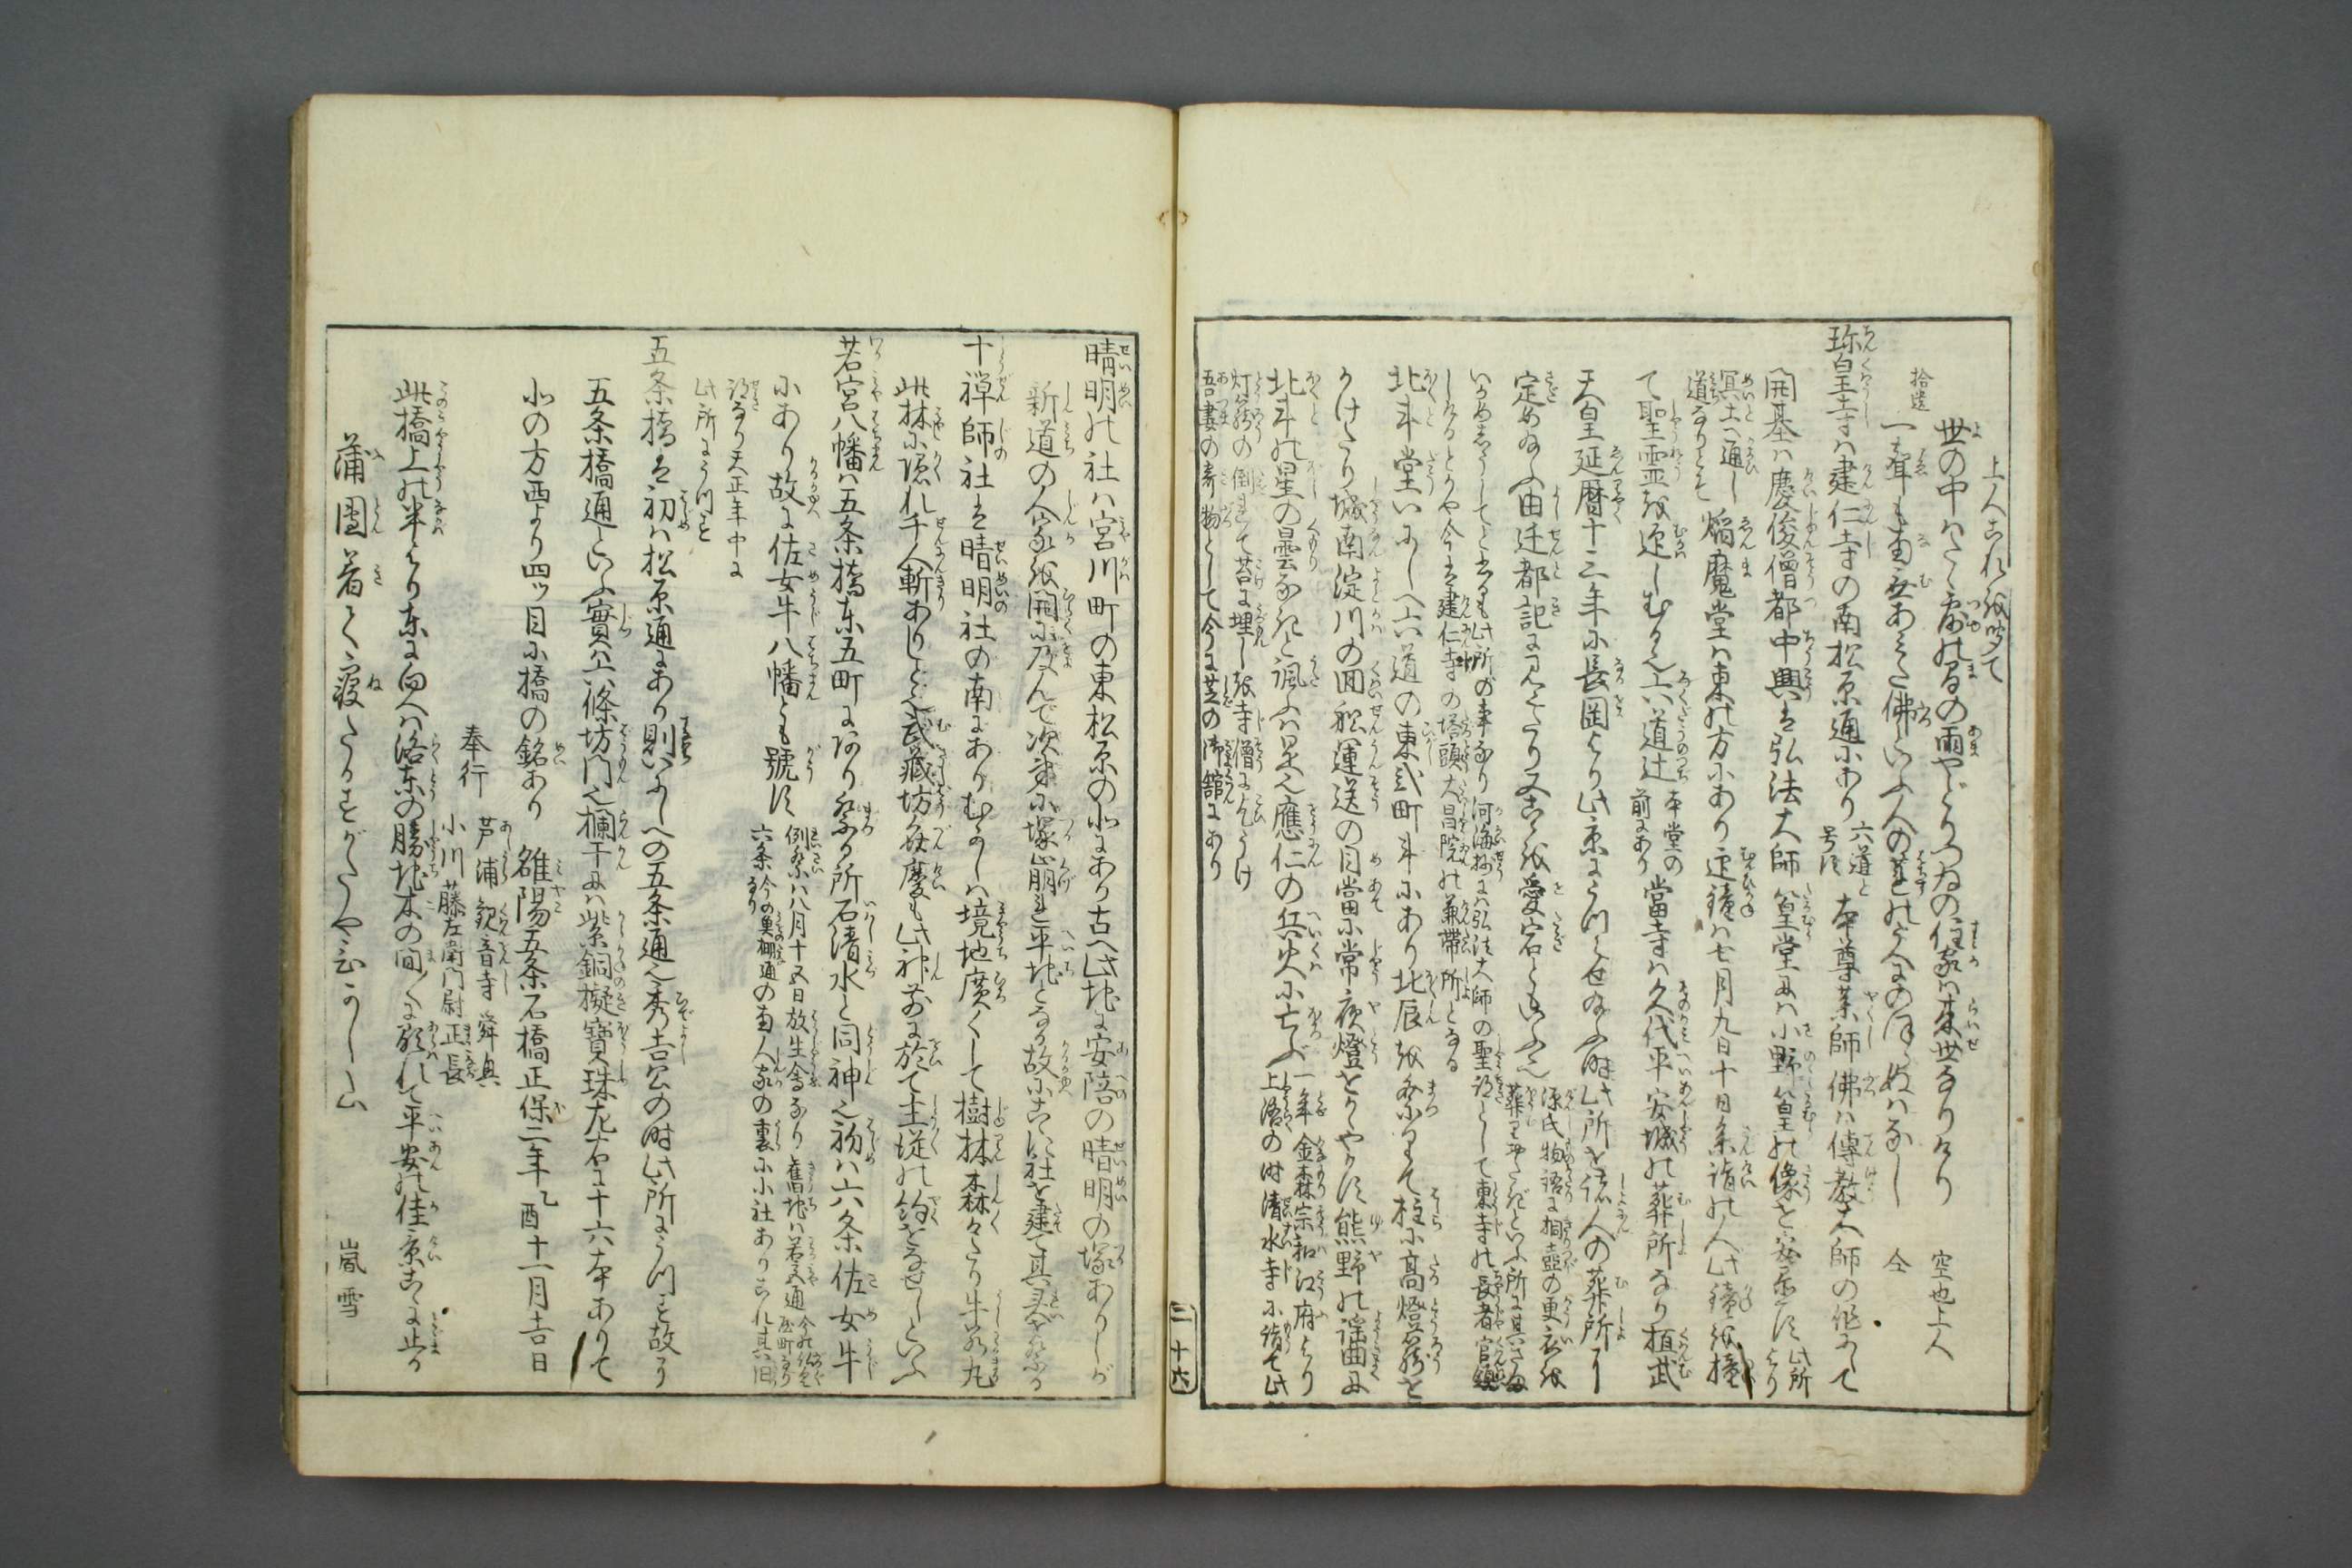 上人これを聞て
世の中はたゝ露の間の雨やどりつゐの住家は来世なりけり　空也上人
拾遺　一聲も南無あみた佛といふ人の蓮の上にのほらぬはなし　仝
珍皇寺ハ建仁寺の南松原通にあり 六道と号す 本尊薬師佛ハ傳教大師の作にして
開基ハ慶俊僧都中興は弘法大師篁堂にハ小野篁の像を安置す 此所より
冥土へ通ひし道なりとそ 焔魔堂ハ東の方にあり迎鐘ハ七月九日十日参詣の人此鐘を撞
て聖霊を迎しむる也六道辻 本堂の前にあり 當寺ハ久代平安城の葬所なり桓武
天皇延暦十三年に長岡より此京にうつらせ給ふ時此所を諸人の葬所に
定め給ふ由遷都記に見えたり又こゝを愛宕ともいふ也 源氏物語に桐壺の更衣を
葬りをたぎといふ所に其さほ
いかめしうしてと有も此所の事なり河海抄に弘法大師の聖跡として東寺の長者官領
しけるとかや今は建仁寺の塔頭大昌院の兼帯所となる
北斗堂いにしへ六道の東弐町斗にあり北辰を祭りて柱に高燈籠を
かけたり城南淀川の回舩運送の目當に常夜燈をかゝやかす熊野の謡曲に
北斗の星の曇なきと諷ふは是也應仁の兵火に亡ぶ 一年金森宗和江府より
上洛の時清水寺に詣て此
灯籠の倒れて苔に埋しを寺僧に乞うけ
吾妻の寄物として今に芝の御舘にあり
三 十六
晴明の社ハ宮川町の東松原の北にあり古へ此地に安陪の晴明の塚ありしが
新道の人家を開に及んで次第に塚崩れ平地となる故にこゝに社を建て其霊を祭る
十禅師社は晴明社の南にありむかしハ境地廣くして樹林森々たり牛若丸
此林に隠れ千人斬ありしとぞ武蔵坊弁慶も此神前に於て主従の約をなせしといふ
若宮八幡ハ五条橋東五町にあり祭る所石清水と同神也初ハ六条佐女牛
にあり故に佐女牛八幡とも號す 例祭ハ八月十五日放生會なり舊地ハ若宮通
六条今の魚棚通の南人家の裏に小社ありこれ其旧
跡なり天正年中に
此所にうつすと
五条橋は初ハ松原通にあり則いにしへの五条通也秀吉公の時此所にうつす故に
五条橋通といふ實ハ六條坊門也欄干にハ紫銅擬寶珠左右に十六本ありて
北の方西より四ツ目に橋の銘あり 雒陽五条石橋正保二年乙酉十一月吉日
奉行 芦浦観音寺舜興
小川藤左衛門尉正長
此橋上の半より東に向へは洛東の勝地木の間〳〵に顕れて平安の佳景こゝに止る
蒲團着て寝たるすがたやひがし山　嵐雪